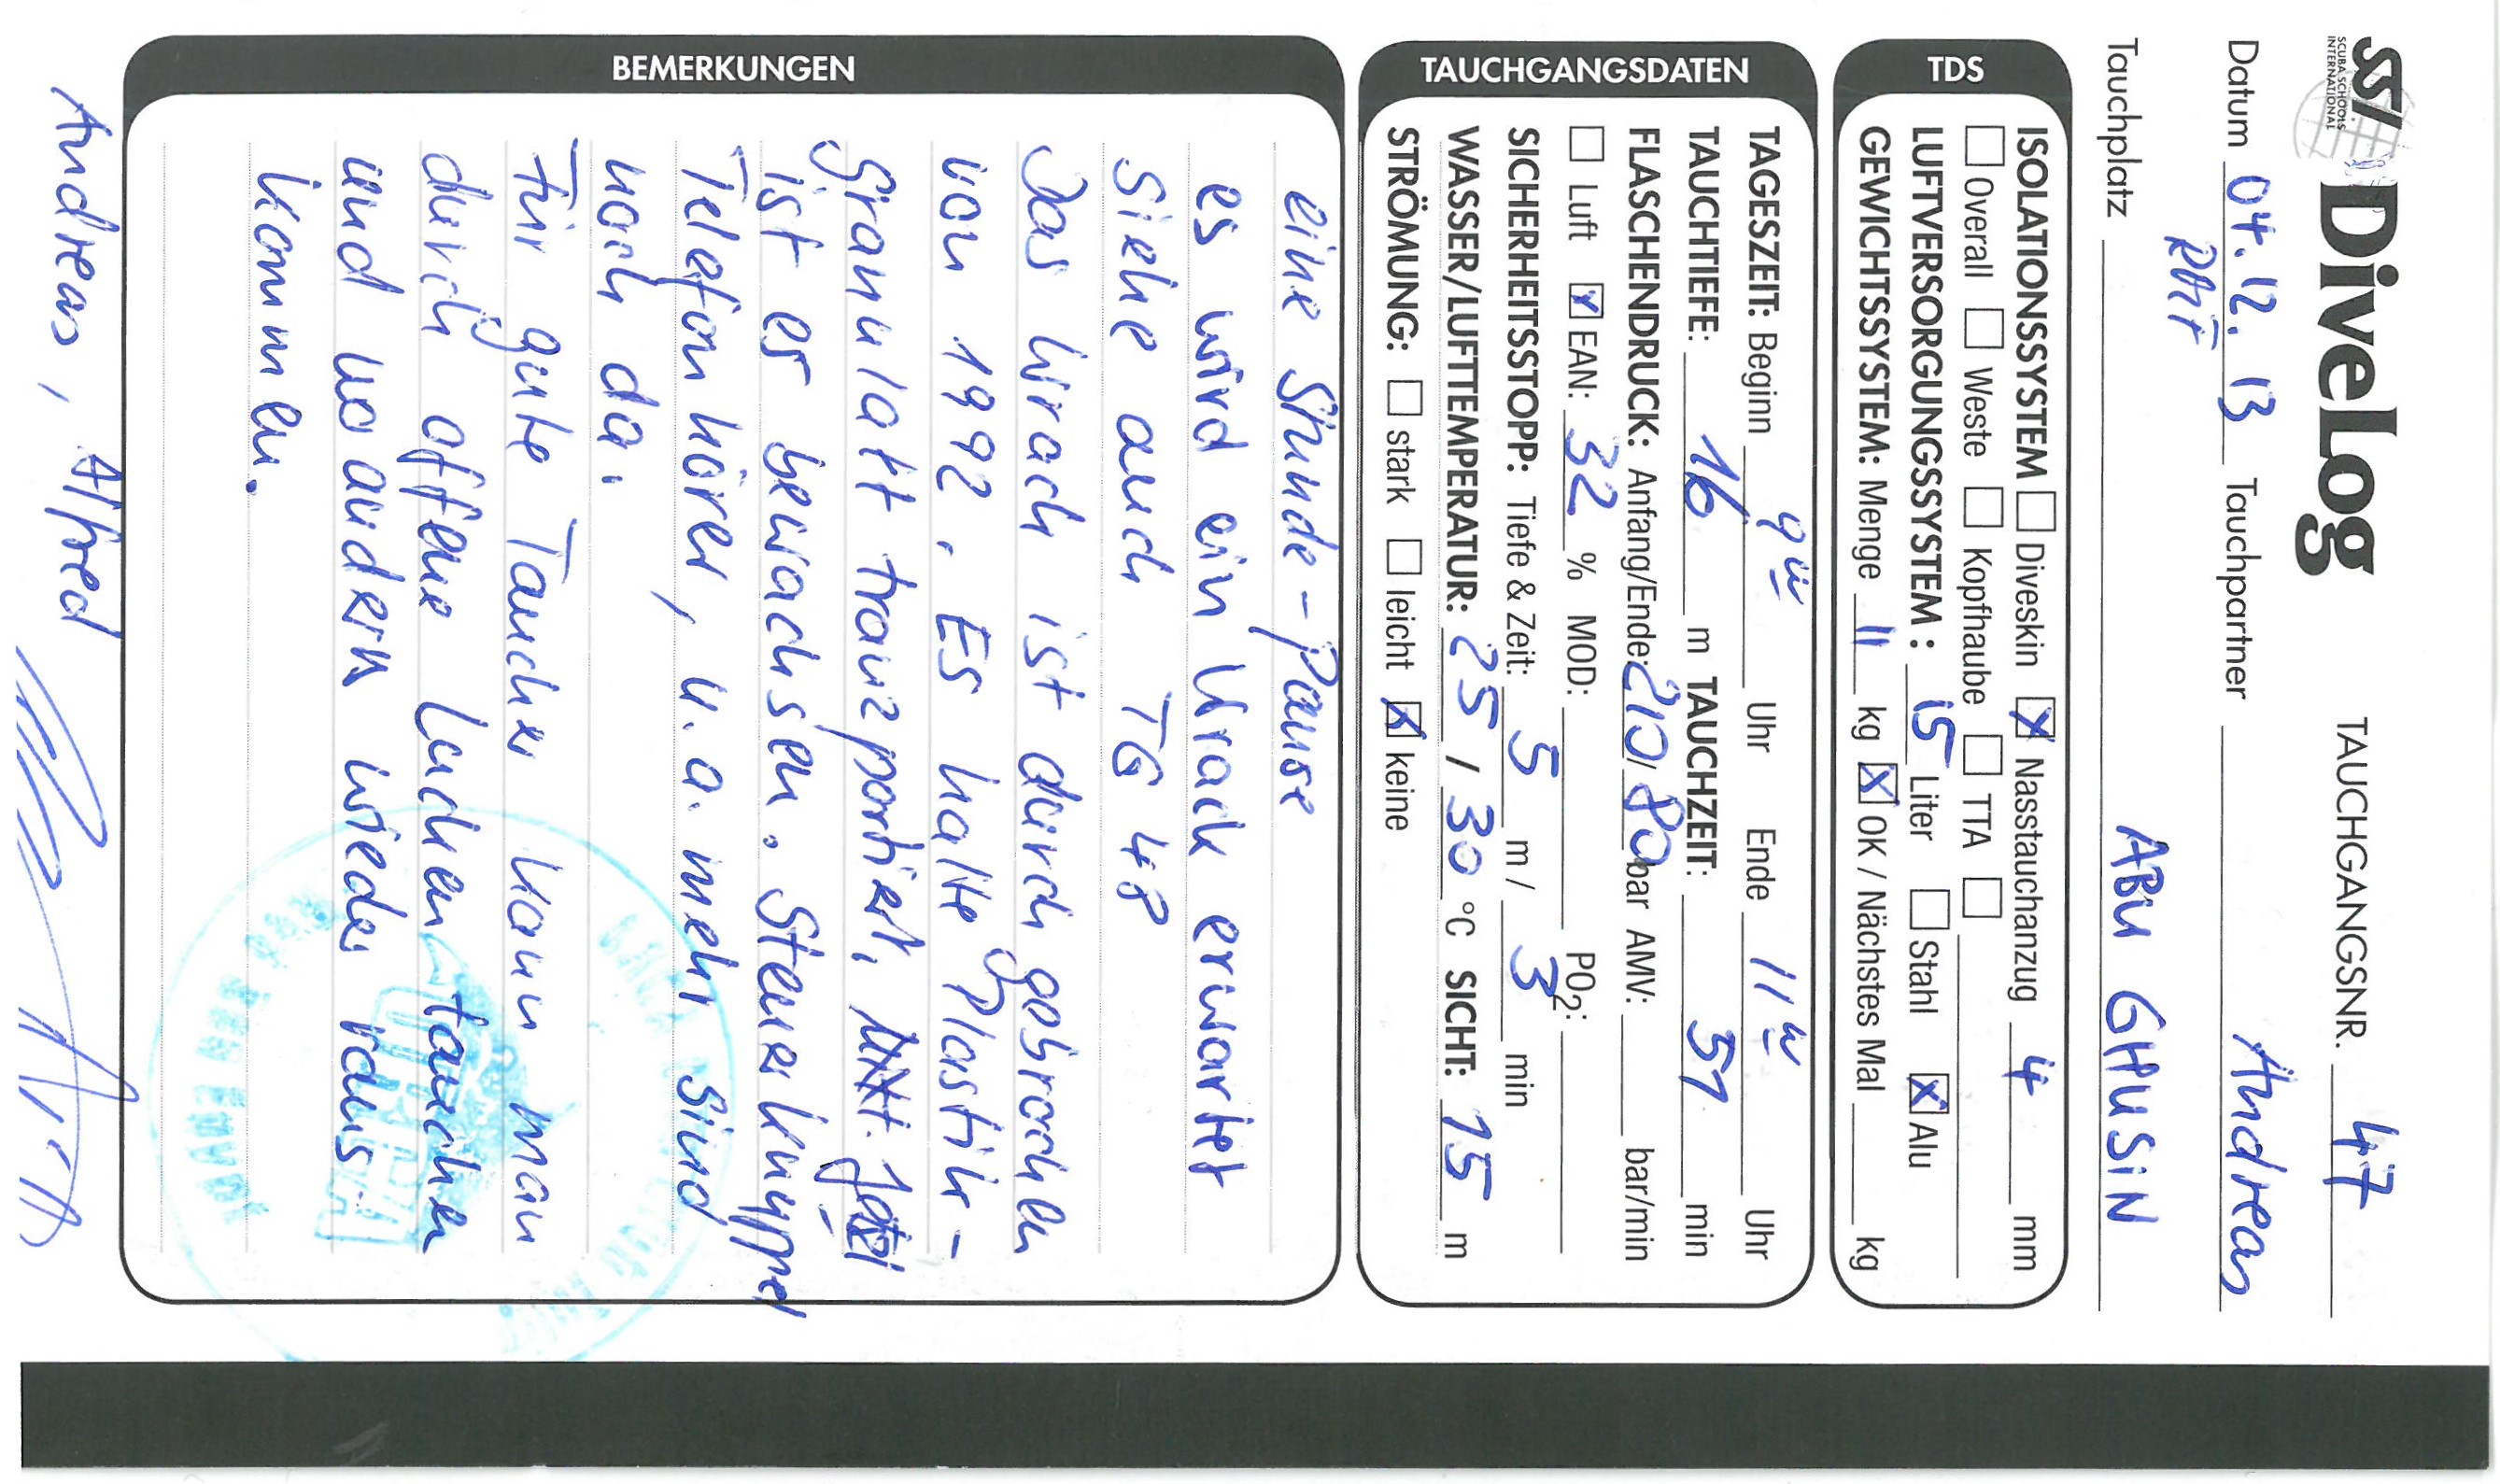 SSI DiveLog TAUCHGANGSNR. 47
SCUBA SCHOOLS
INTERNATIONAL
Datum 04.12.13 Tauchpartner Andreas
Tauchplatz ABU GHUSIN
ISOLATIONSSYSTEM ☐ Diveskin ☒ Nasstauchanzug 4 mm
☐ Overall ☐ Weste ☐ Kopfhaube ☐ TTA ☐
LUFTVERSORGUNGSSYSTEM: 15 Liter ☐ Stahl ☒ Alu
GEWICHTSSYSTEM: Menge 11 kg ☒ OK / Nächstes Mal kg
TDS
TAGESZEIT: Beginn 9 Uhr Ende 11 Uhr
TAUCHTIEFE: 16 m TAUCHZEIT: 51 min
FLASCHENDRUCK: Anfang/Ende: 210/80 bar AMV: bar/min
☐ Luft ☒ EAN: 32 % MOD: PO2:
SICHERHEITSSTOPP: Tiefe & Zeit: 5 m / 3 min
WASSER/LUFTTEMPERATUR: 25 / 30 °C SICHT: 15 m
STRÖMUNG: ☐ stark ☐ leicht ☒ keine
TAUCHGANGSDATEN
BEMERKUNGEN
eine Stunde-Pause
es wird ein Wrack erwartet
siehe auch TG 48
Das Wrack ist durchgebrochen
von 1992. Es hatte Plastik-
granulatt tranzportiert. Jetzt
ist es bewachsen. Steuerknüppel
Telefonhörer, u.a. mehr sind
noch da.
Für gute Taucher kann man
durch offene Lucken tauchen
und wo anders wieder raus
kommen.
Andreas, Alfred